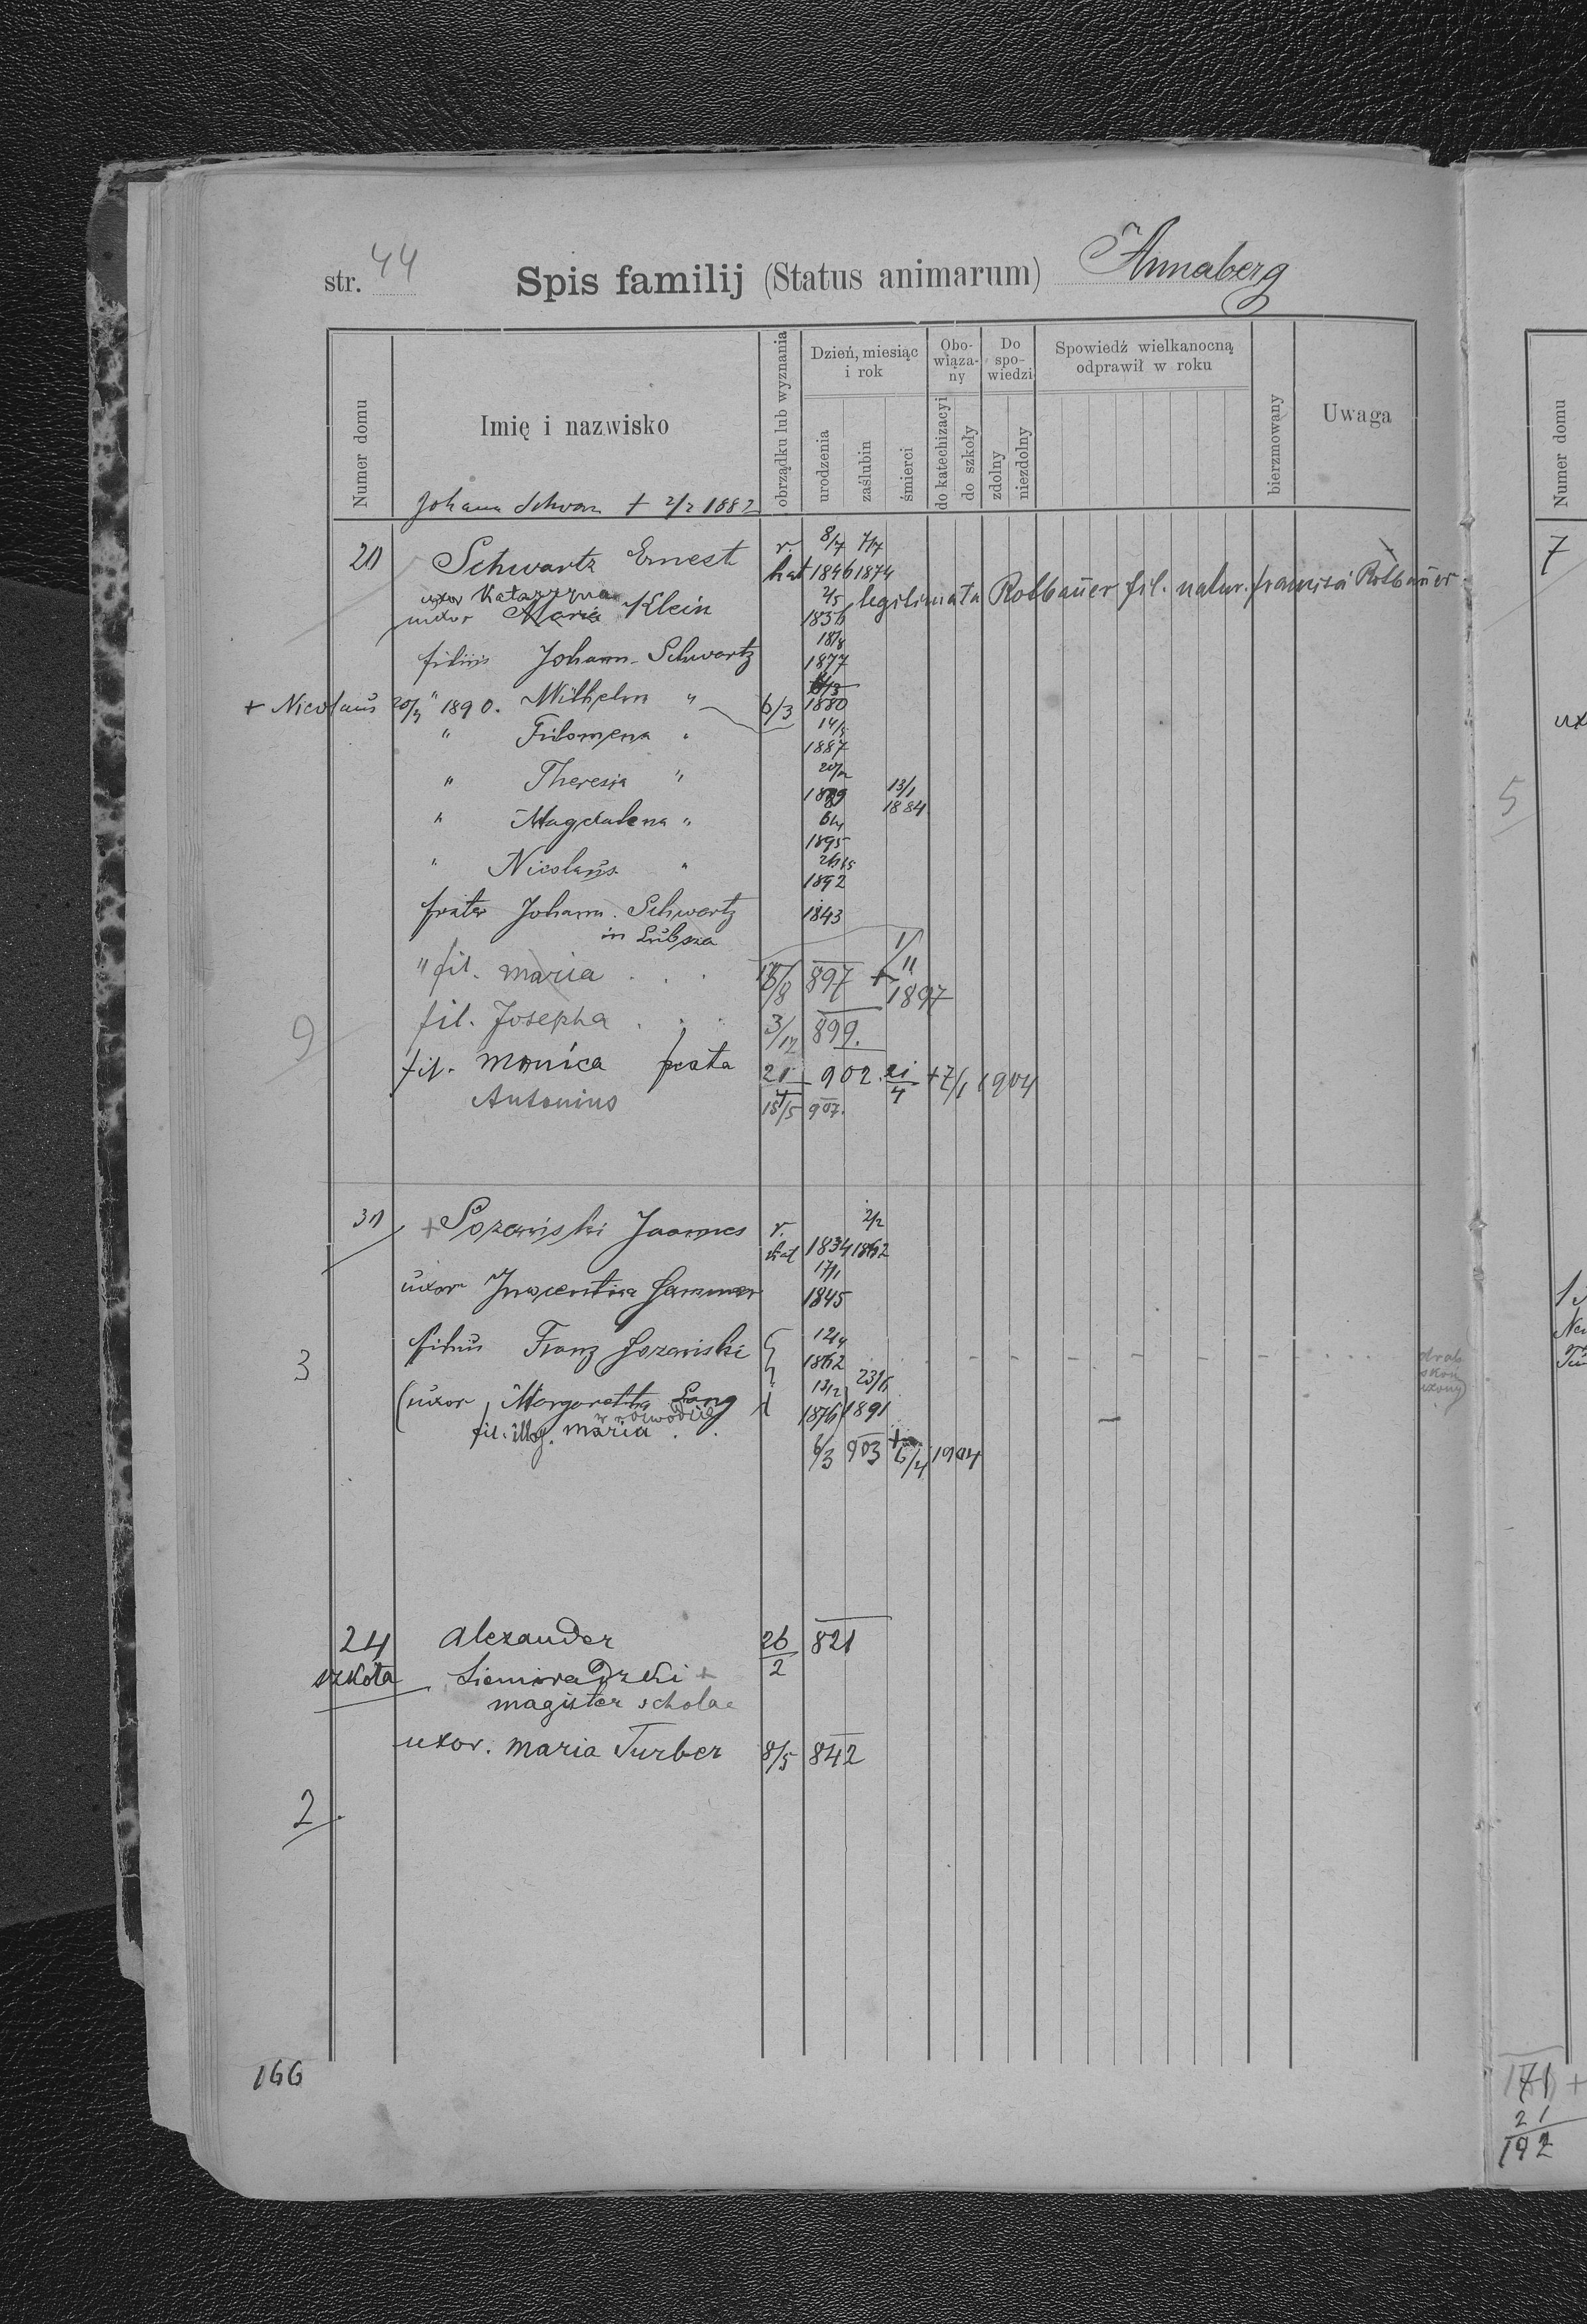 str. 44 Spis familij (Status animarum) Annaberg
Numer domu
Imię i nazwisko
obrządku lub wyznania
Dzień, miesiąc i rok
urodzenia
zaślubin
śmierci
Obowiązany
do katechizacyi
do szkoły
Do spowiedzi
zdolny
niezdolny
Spowiedź wielkanocną odprawił w roku
bierzmowany
Uwaga
Johann Schwarz + 2/2 1882
20 Schwartz Ernest r. kat 8/7 1846 7/7 1874
uxor Katarzyna
uxor Maria Klein 2/5 1856 legitimata Rotbaüer fil. natur. Rotbaüer
filius Johann Schwartz 18/8 1877
+ Nicolaus 20/4 1890. " Wilhelm " 6/3 1880
" Filomena " 14/5 1887
" Theresia " 1889 13/1 1884
" Magdalena " 6/4 1895
" Nicolaüs " 1892
frater Johann Schwartz 1843
in Lübsza
" fil. maria . . . 16/8 897 + 1/11 1897
9 fil. Josepha . . . 3/12 899.
fil. Monica 21/4 902. 21/4 + 7/1 1904
Antonius 15/5 907.
31 + Joannes r. kat 1834 2/2 1862
üxor 17/1 1845
3 filius Franz 12/4 1862 - - - - - - -
(üxor Margaretha Lang 13/2 1876 23/6 1891
w rozwodzie
fil. illeg. maria . . 6/3 903 + 6/4 1904
24 Alexander 26/2 821
szkoła Siemiradzki +
magister scholae
uxor. Maria Turber 8/5 842
2.
166
Numer domu
7
5
ux
171 +
21
192